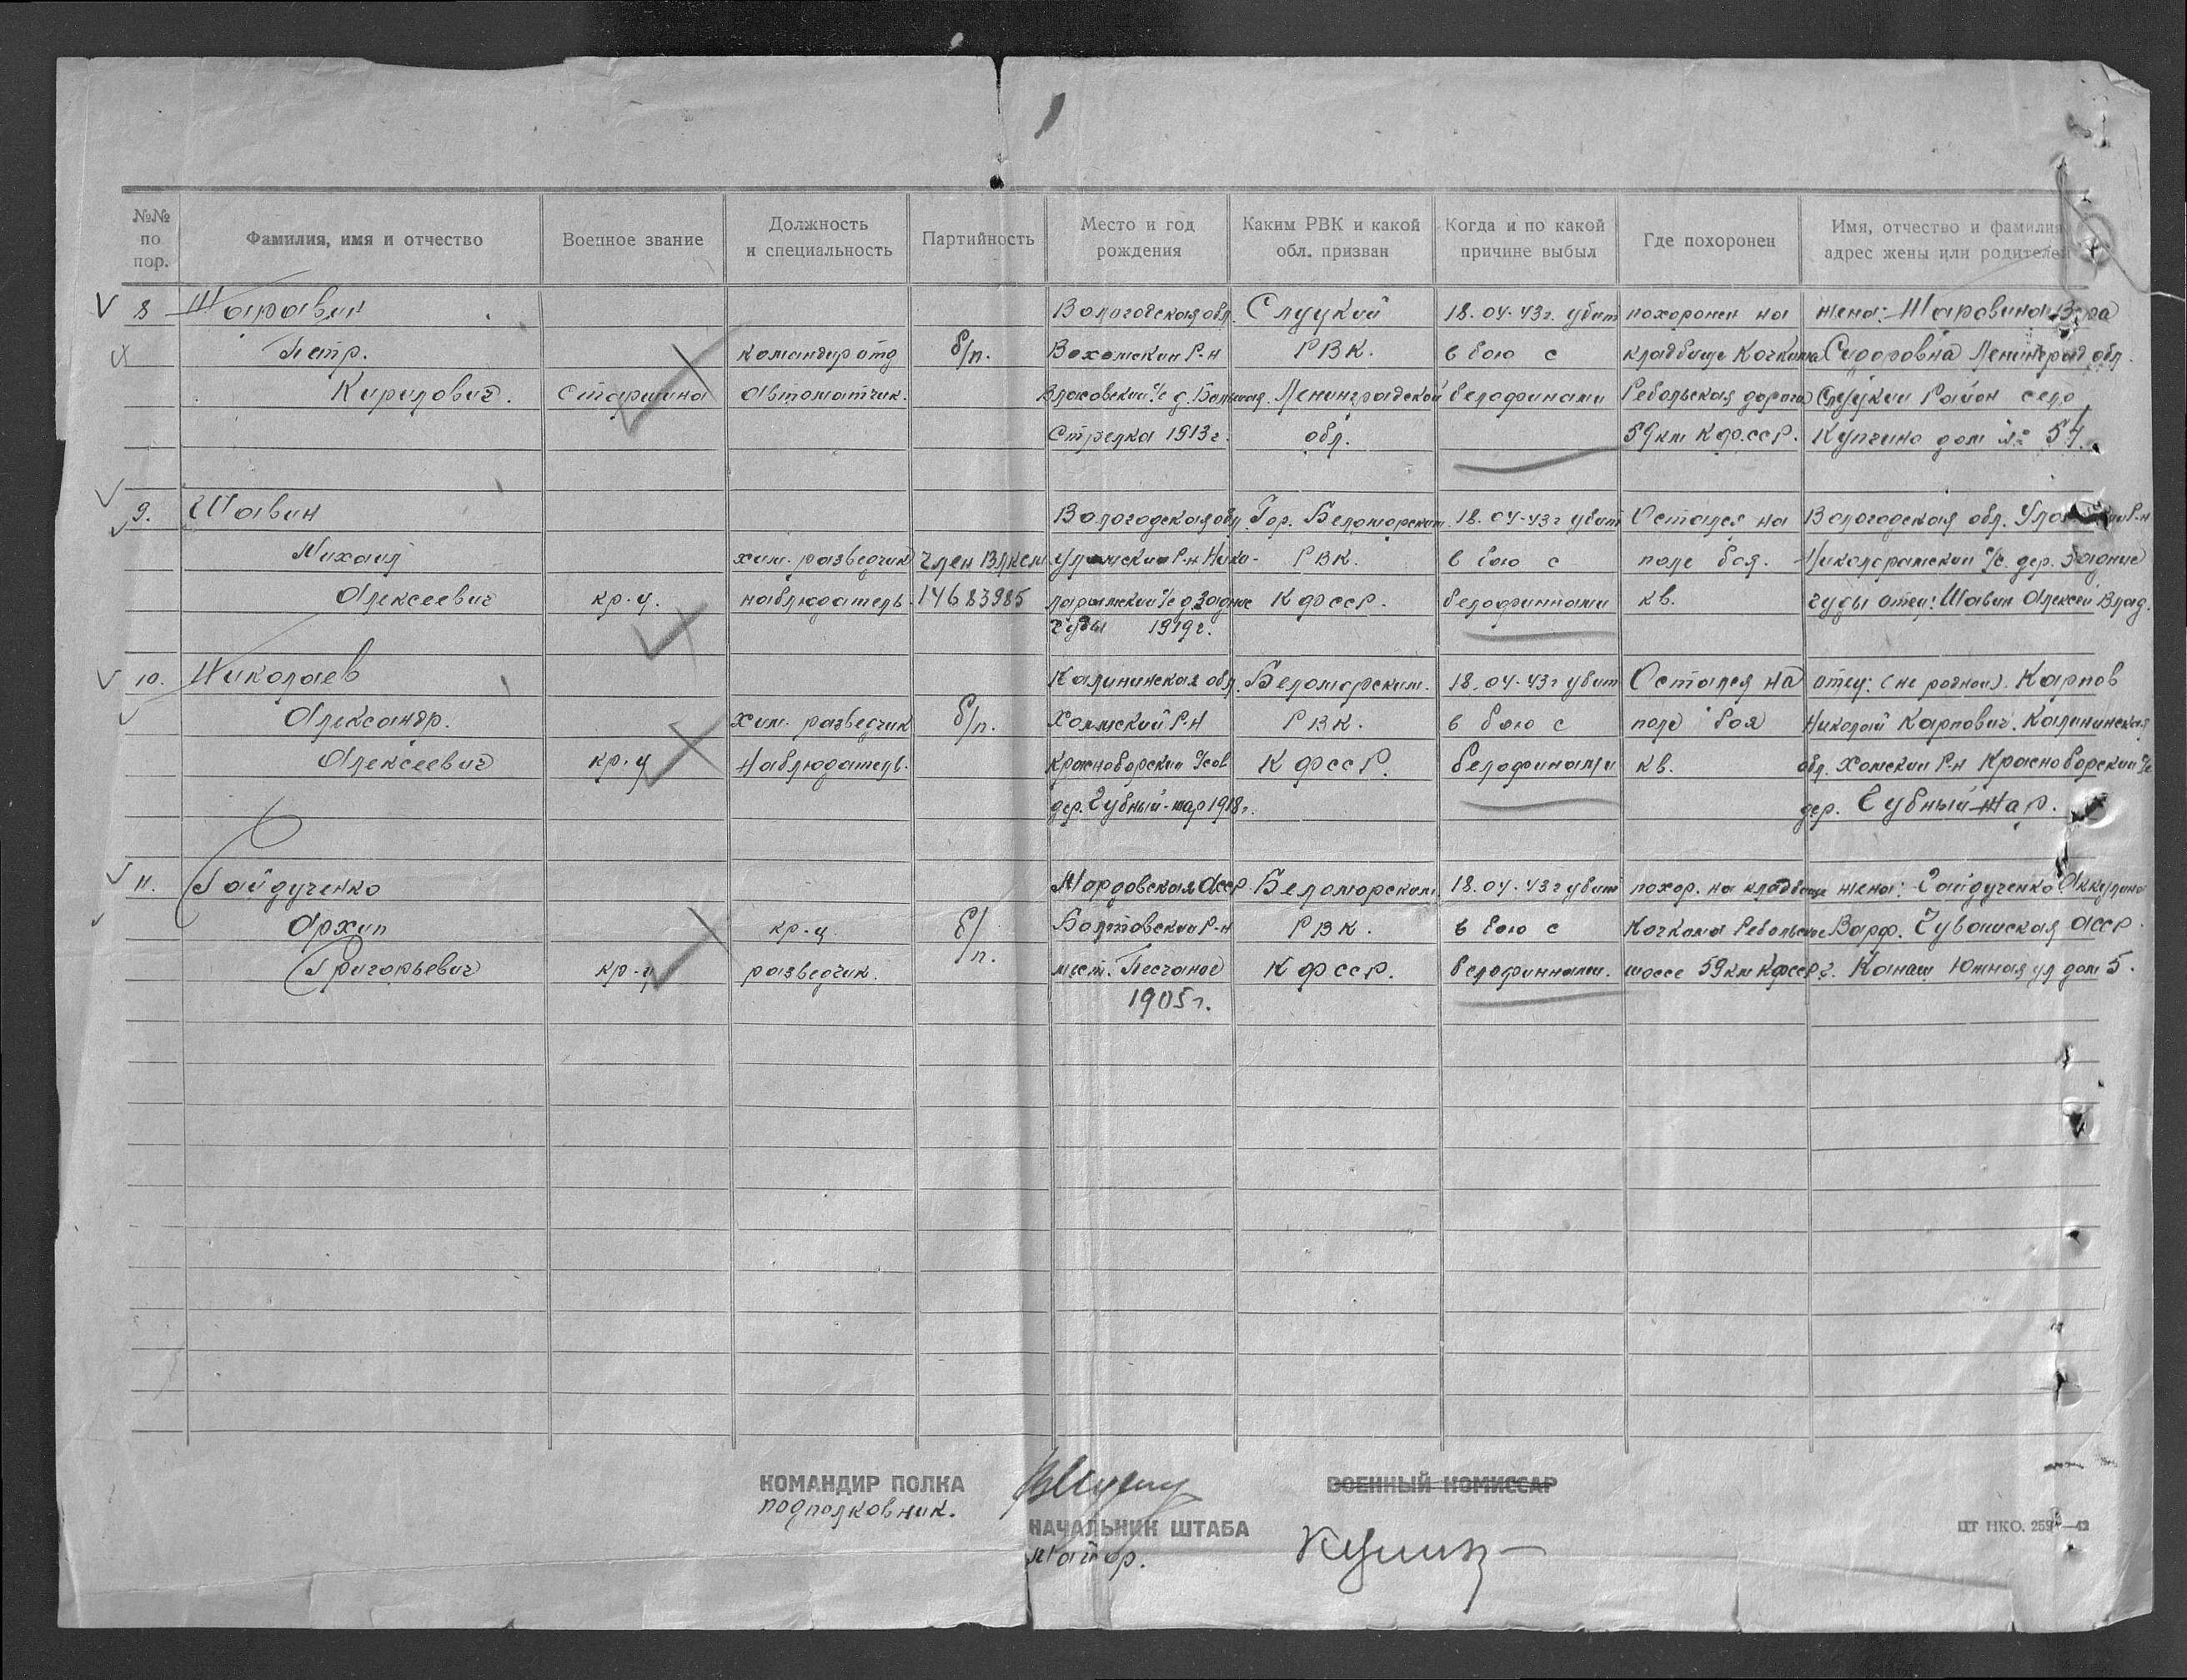 №№ по пор. | Фамилия, имя и отчество | Военное звание | Должность и специальность | Партийность | Место и год рождения | Каким РВК и какой обл. призван | Когда и по какой причине выбыл | Где похоронен | Имя, отчество и фамилия адрес жены или родителей
8 | Шаравин | | | | Вологодская обл. | Слуцкий | 18.04.43г. убит | похоронен на | жена: Шаравина Вера
Петр. | | командир отд | б/п. | Вохомский Р-н | РВК. | в бою с | кладбище Кочкома | Сидоровна Ленинград обл.
Кирилович. | Старшина | Автоматчик. | | с/с д. Большая | Ленинградской | белофинами | Ребольская дорога | Слуцкий Район село
Стрелка 1913г. | обл. | | 59 км КфССР. | Купчино дом № 54.
9. | Шавин | | | | Вологодская обл. | Гор. Беломорским | 18.04.43г убит | Остался на | Вологодская обл. Р-н
Михаил | | хим. разведчик | Член ВЛКСМ | Уломский Р-н Нико- | РВК. | в бою с | поле боя. | с/с. дер. Задние
Алексеевич | кр-ц. | наблюдатель | 14683985 | с/с д Задние | КфССР. | белофиннами | кв. | чуды отец: Шавин Алексей Влад.
Чуды 1919г.
10. | Николаев | | | | Калининская обл. | Беломорским. | 18.04.43г убит | Остался на | отец: (не родной). Карпов
Александр. | | хим. разведчик | б/п. | Холмский Р-н | РВК. | в бою с | поле боя | Николай Карпович. Калининская
Алексеевич | кр-ц | Наблюдатель. | | Красноборский с/сов | КфССР. | белофинами | кв. | обл. Хомский Р-н Красноборский с/с
дер. Чубный-шар 1918г. | | | | дер. Чубный-Жар.
11. | Гайдученко | | | | Мордовская АССР | Беломорским | 18.04.43г убит | похор. на кладбище | жена: Гайдученко Аккулина
Архип | | кр-ц. | б/п. | Болтовский Р-н | РВК. | в бою с | Кочкома Ребольское | Варф. Чувашская АССР.
Григорьевич | кр-ц | разведчик. | | мест. Песчаное | КфССР. | белофиннами. | шоссе 59 км КфССР | г. Канаш Южная ул дом 5.
1905г.
КОМАНДИР ПОЛКА
подполковник.
ВОЕННЫЙ КОМИССАР
НАЧАЛЬНИК ШТАБА
Майор.
ЦТ НКО. 259 —42